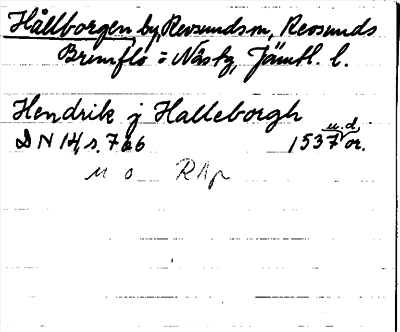 Hållborgen by, Revsunds sn, Revsunds
Brunflo o Näs tg, Jämtl. l.
Hendrik j Halleborgh
u.d.
DN 14, s. 766 1537 or.
u o RAp